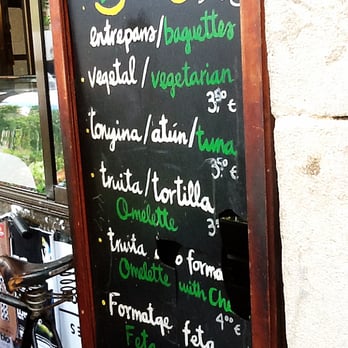 entrepans/baguettes
vegetal/vegetarian
3,50 €
tonyina/atún/tuna
3,50 €
truita/tortilla
Omelette
truita forma
Omelette with Che
4,00 €
Formatge feta
Feta